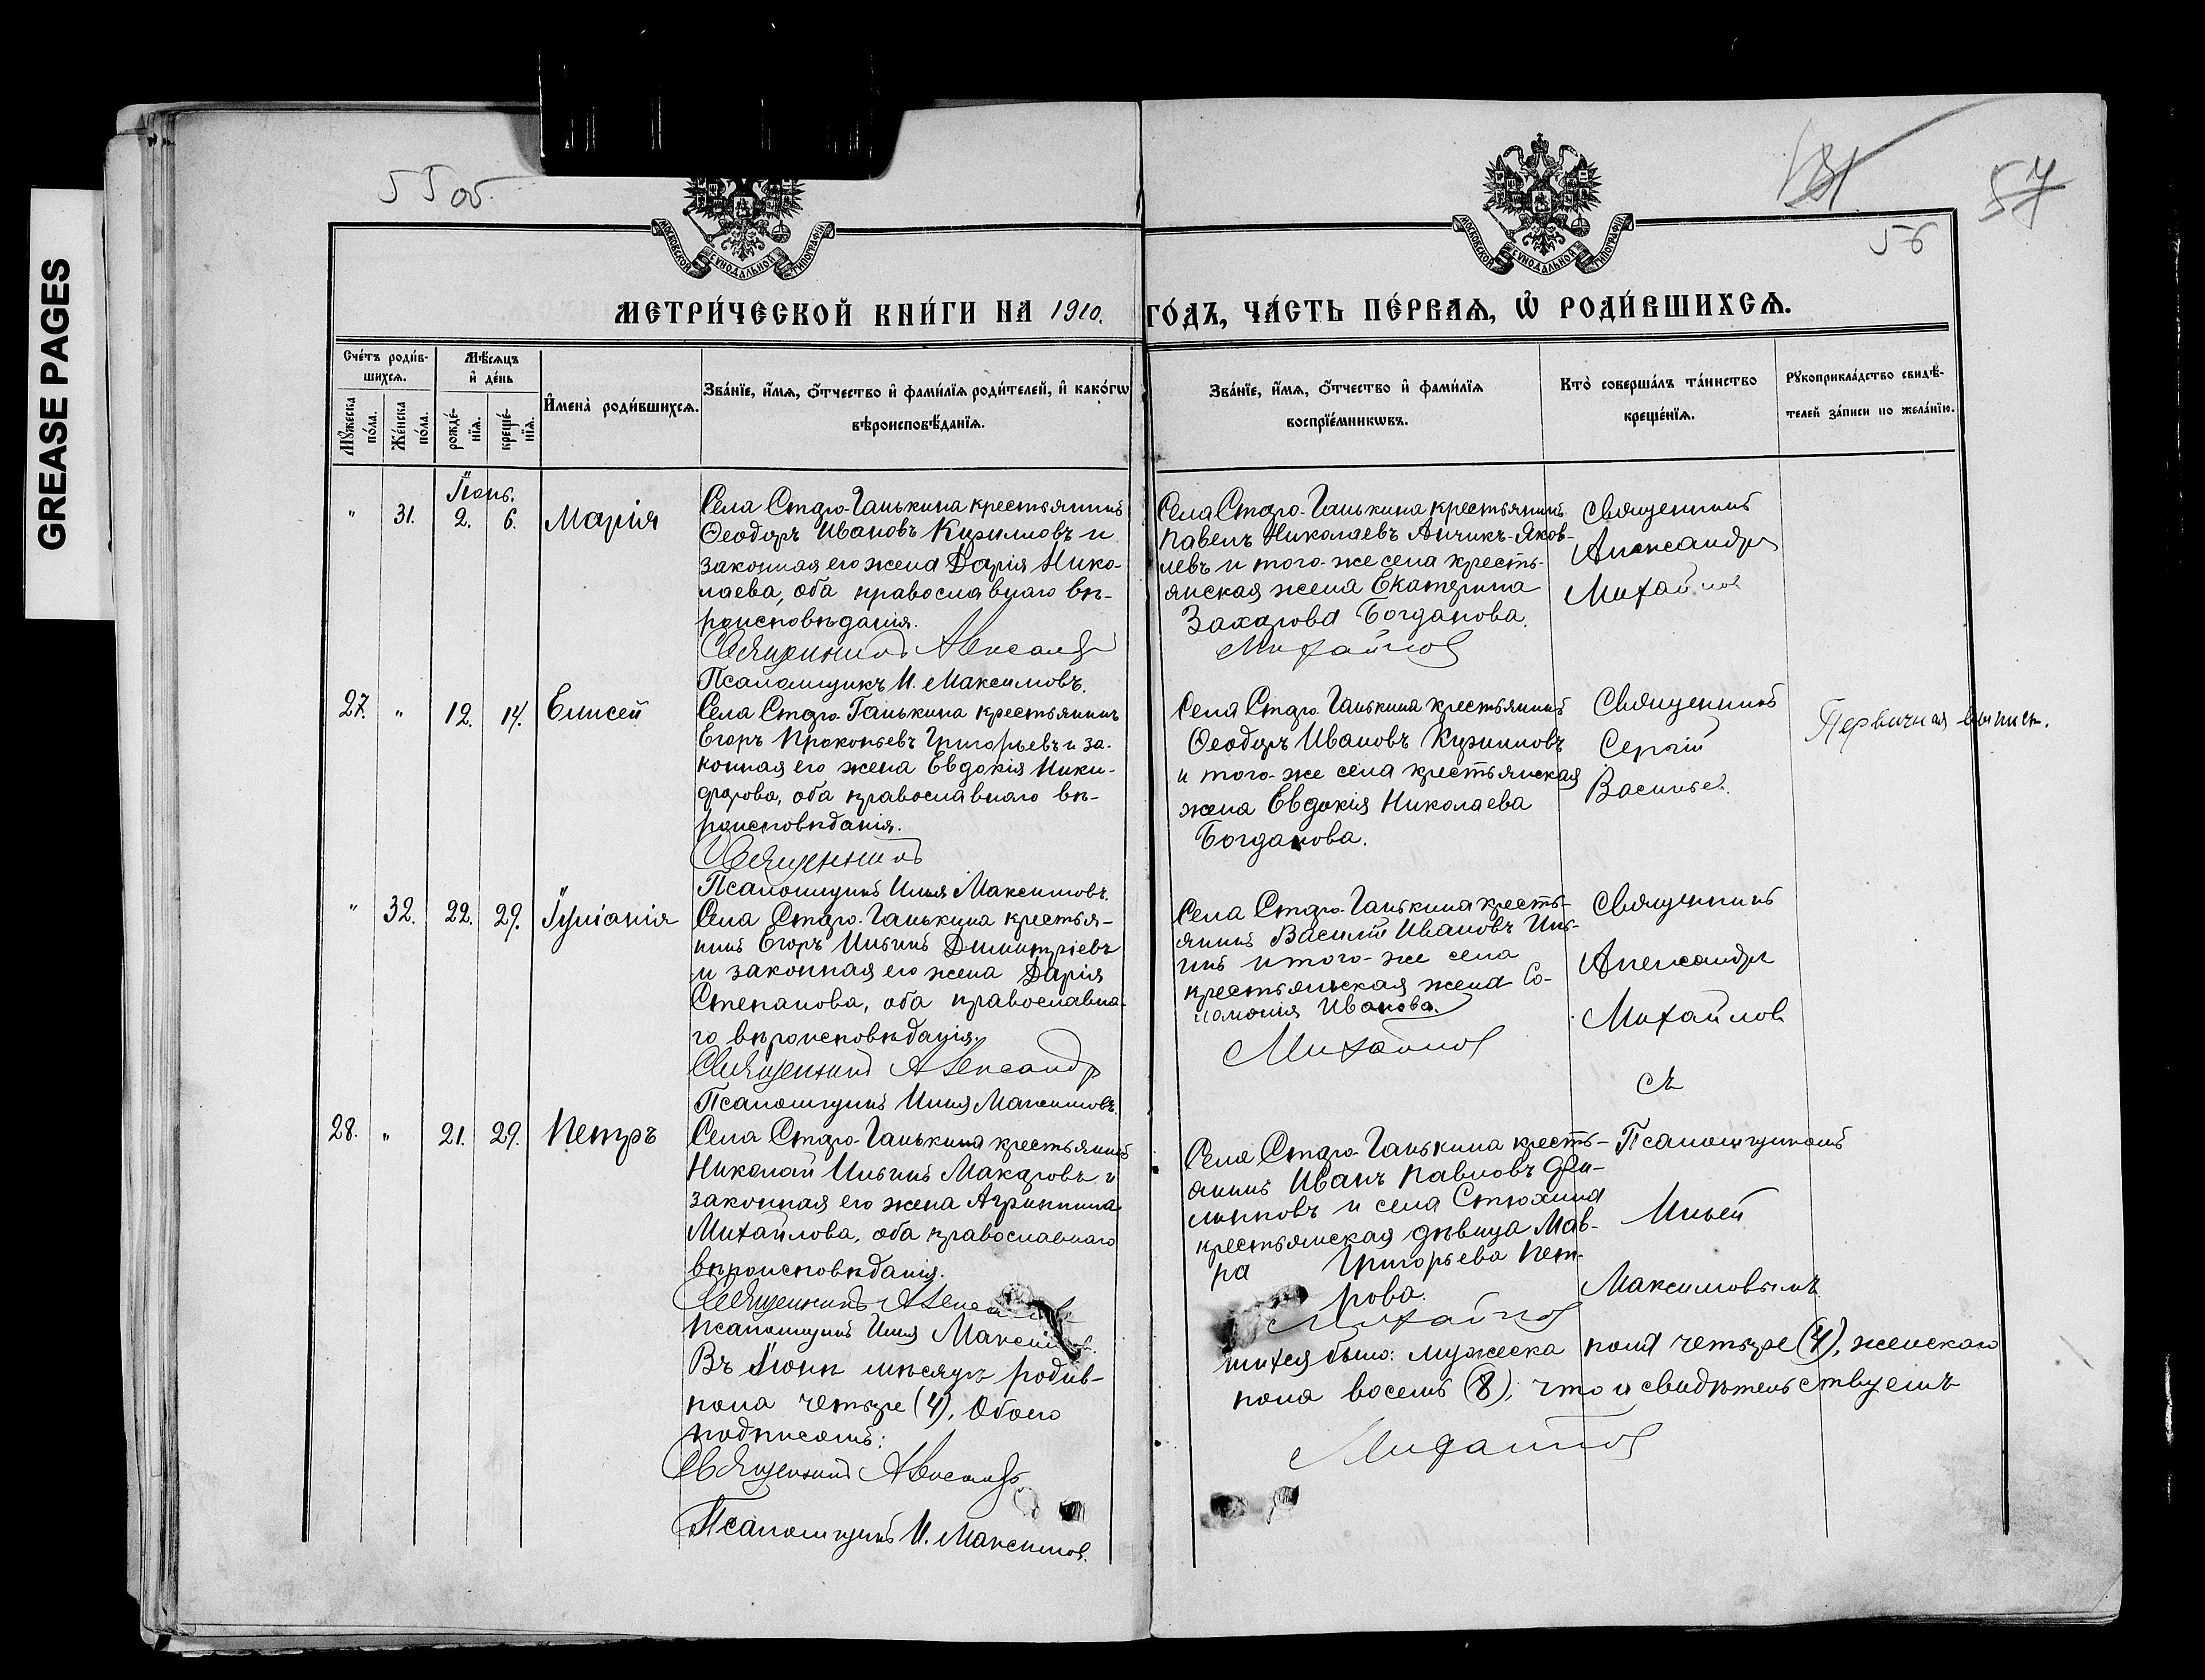 GREASE PAGES
55 об.
57
56
МОСКОВСКОЙ СѴНОДАЛЬНОЙ ТИПОГРАФІИ
МОСКОВСКОЙ СѴНОДАЛЬНОЙ ТИПОГРАФІИ
МЕТРИ́ЧЕСКОЙ КНИ́ГИ НА 1910. ГО́ДЪ, ЧА́СТЬ ПЕ́РВАѦ, Ѽ РОДИ́ВШИХСѦ.
Сче́тъ роди́в-
шихсѧ.
Мѣ́сѧцъ
и҆ де́нь
Мꙋ́жеска по́ла.
Же́нска по́ла.
рожде́-нїѧ.
креще́-нїѧ.
И҆мена̀ роди́вшихсѧ.
Зва́нїе, и҆́мѧ, ѻ҆́тчество и҆ фами́лїѧ роди́телей, и҆ како́гѡ
вѣроисповѣ́данїѧ.
Зва́нїе, и҆́мѧ, ѻ҆́тчество и҆ фами́лїѧ
воспрїе́мникѡвъ.
Кто̀ соверша́лъ та́инство
креще́нїѧ.
Рꙋкоприкла́дство свидѣ́-
телей за́писи по жела́нїю.
Іюнь.
" 31. 2. 6. Марія
Села Старо-Ганькина крестьянинъ
Ѳеодоръ Ивановъ Кирилловъ и
законная его жена Дарія Нико-
лаева, оба православнаго вѣ-
роисповѣданія.
Священникъ Александр
Псаломщикъ И. Максимовъ.
Села Старо-Ганькина крестьянинъ
Павелъ Николаевъ Анчикъ-Яков-
левъ и того-же села кресть-
янская жена Екатерина
Захарова Богданова.
Михайлов
Священникъ
Александръ
Михайлов
27. " 12. 14. Елисей
Села Старо-Ганькина крестьянинъ
Егоръ Прокопьевъ Григорьевъ и за-
конная его жена Евдокія Ники-
форова, оба православнаго вѣ-
роисповѣданія.
Священникъ
Псаломщикъ Илья Максимовъ.
Села Старо-Ганькина крестьянинъ
Ѳеодоръ Ивановъ Кирилловъ
и того-же села крестьянская
жена Евдокія Николаева
Богданова.
Священникъ
Сергій
Васильев.
Первичная выпись.
" 32. 22. 29. Іуліанія
Села Старо-Ганькина крестья-
нинъ Егоръ Ильинъ Димитріевъ
и законная его жена Дарія
Степанова, оба православна-
го вѣроисповѣданія.
Священникъ Александр
Псаломщикъ Илья Максимовъ.
Села Старо-Ганькина кресть-
янинъ Василій Ивановъ Иль-
инъ и того-же села
крестьянская жена Со-
ломонія Иванова.
Михайлов
Священникъ
Александръ
Михайлов
съ
28. " 21. 29. Петръ
Села Старо-Ганькина крестьянинъ
Николай Ильинъ Макаровъ и
законная его жена Агриппина
Михайлова, оба православнаго
вѣроисповѣданія.
Священникъ
Псаломщикъ Илья
Села Старо-Ганькина кресть-
янинъ Иванъ Павловъ Фи-
липповъ и села Стюхина
крестьянская дѣвица Мав-
ра Григорьева Пет-
рова.
Михайлов
Псаломщикомъ
Ильей
Максимовымъ
Въ Іюнѣ мѣсяцѣ родив-
шихся было: мужеска пола четыре (4), женскаго
пола четыре (4), Обоего
пола восемь (8), что и свидѣтельствуемъ
подписомъ:
Священникъ Александръ Михайлов
Псаломщикъ И. Максимов.